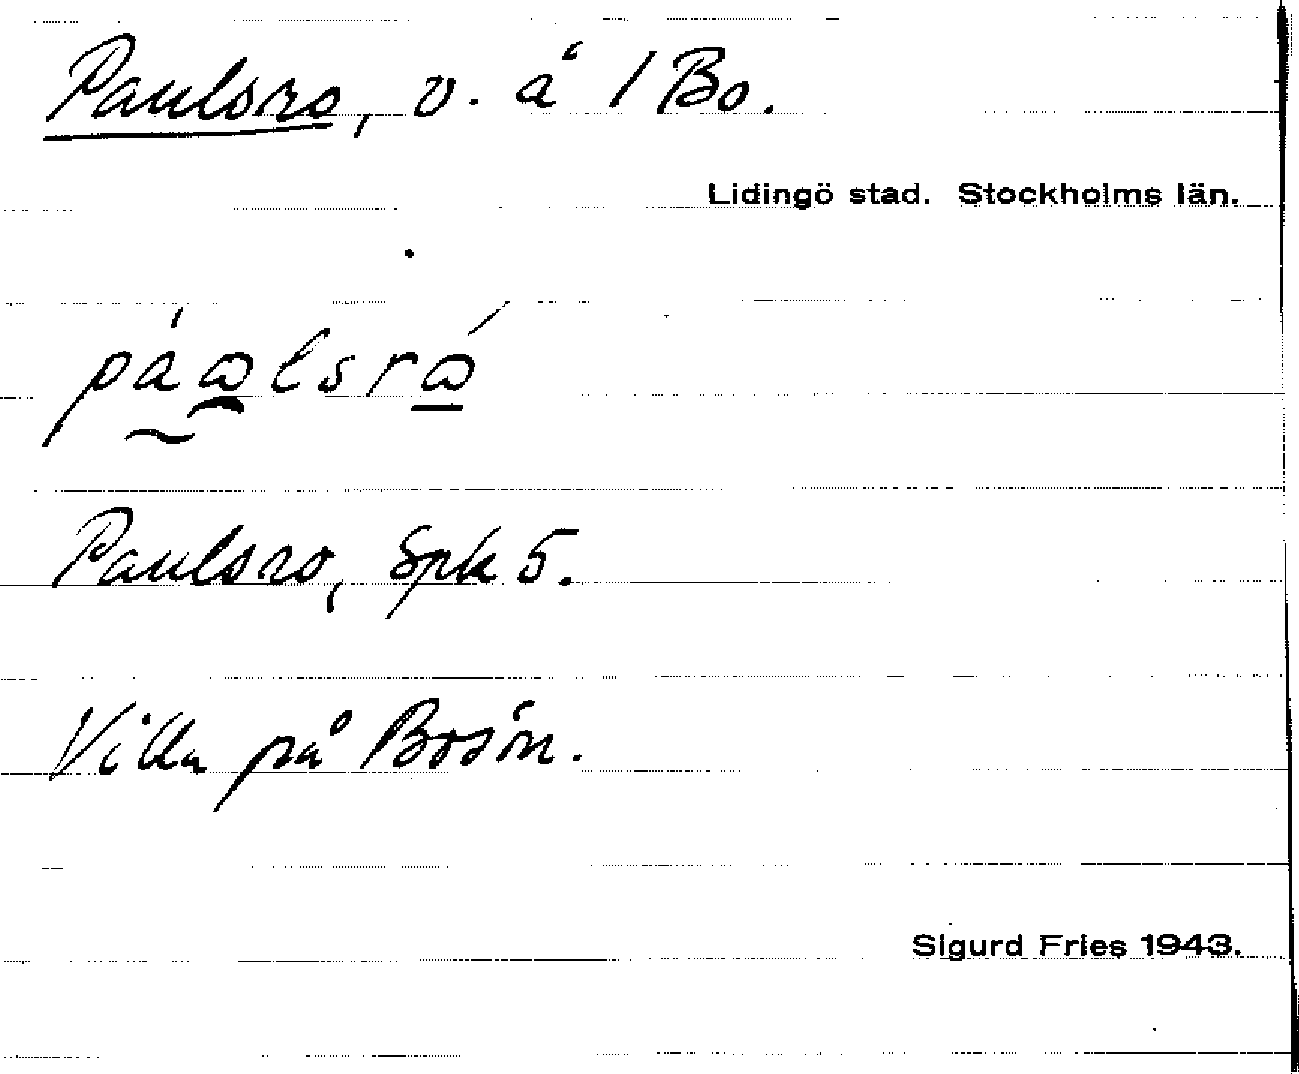 Paulsro, v. å / Bo.
Lidingö stad. Stockholms län.
páω̯lsrώ
Paulsro, Spk 5.
Villa på Bosön.
Sigurd Fries 1943.